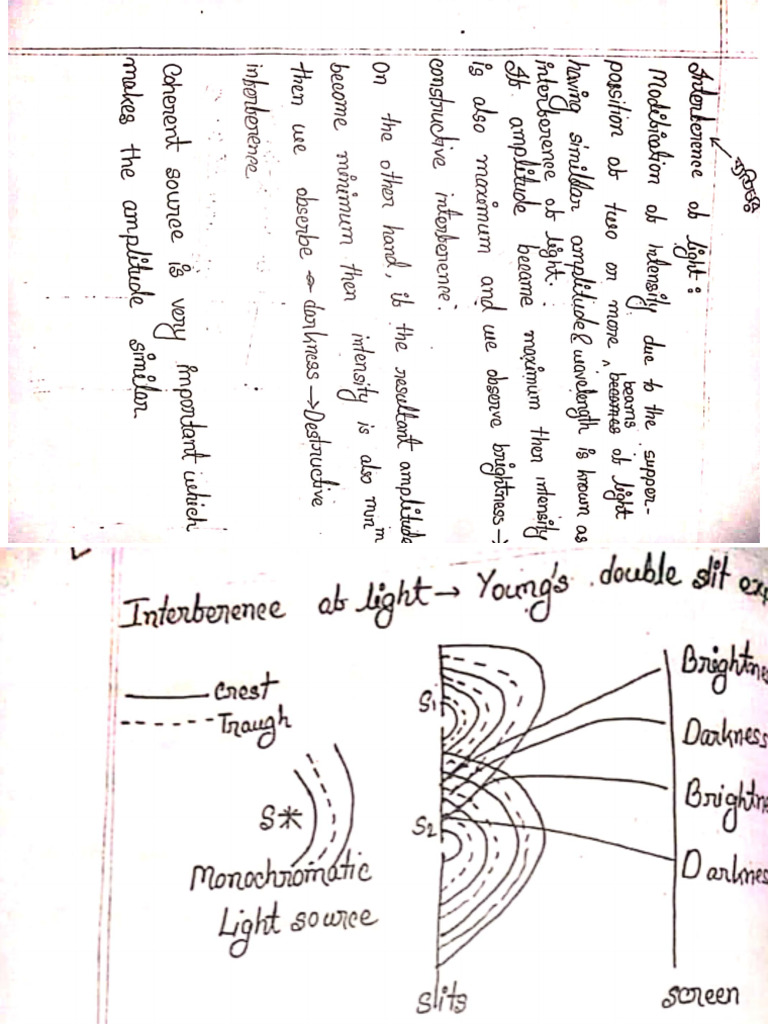 ব্যতিচার
Interference of light :
Modification of intensity due to the supper-
possition of two or more beams of light
having simillar amplitude & wavelength is known as
interference of light.
If amplitude become maximum then intensity
is also maximum and we observe brightness →
constructive interference.
On the other hand, if the resultant amplitude
become minimum then intensity is also minm
then we observe darkness → Destructive
interference
Coherent source is very important which
makes the amplitude similar.
Interference of light → Young's double slit exp
Crest
Traugh
S
Monochromatic
Light source
S1
S2
Slits
Brightne
Darkness
Brightne
Darknes
screen